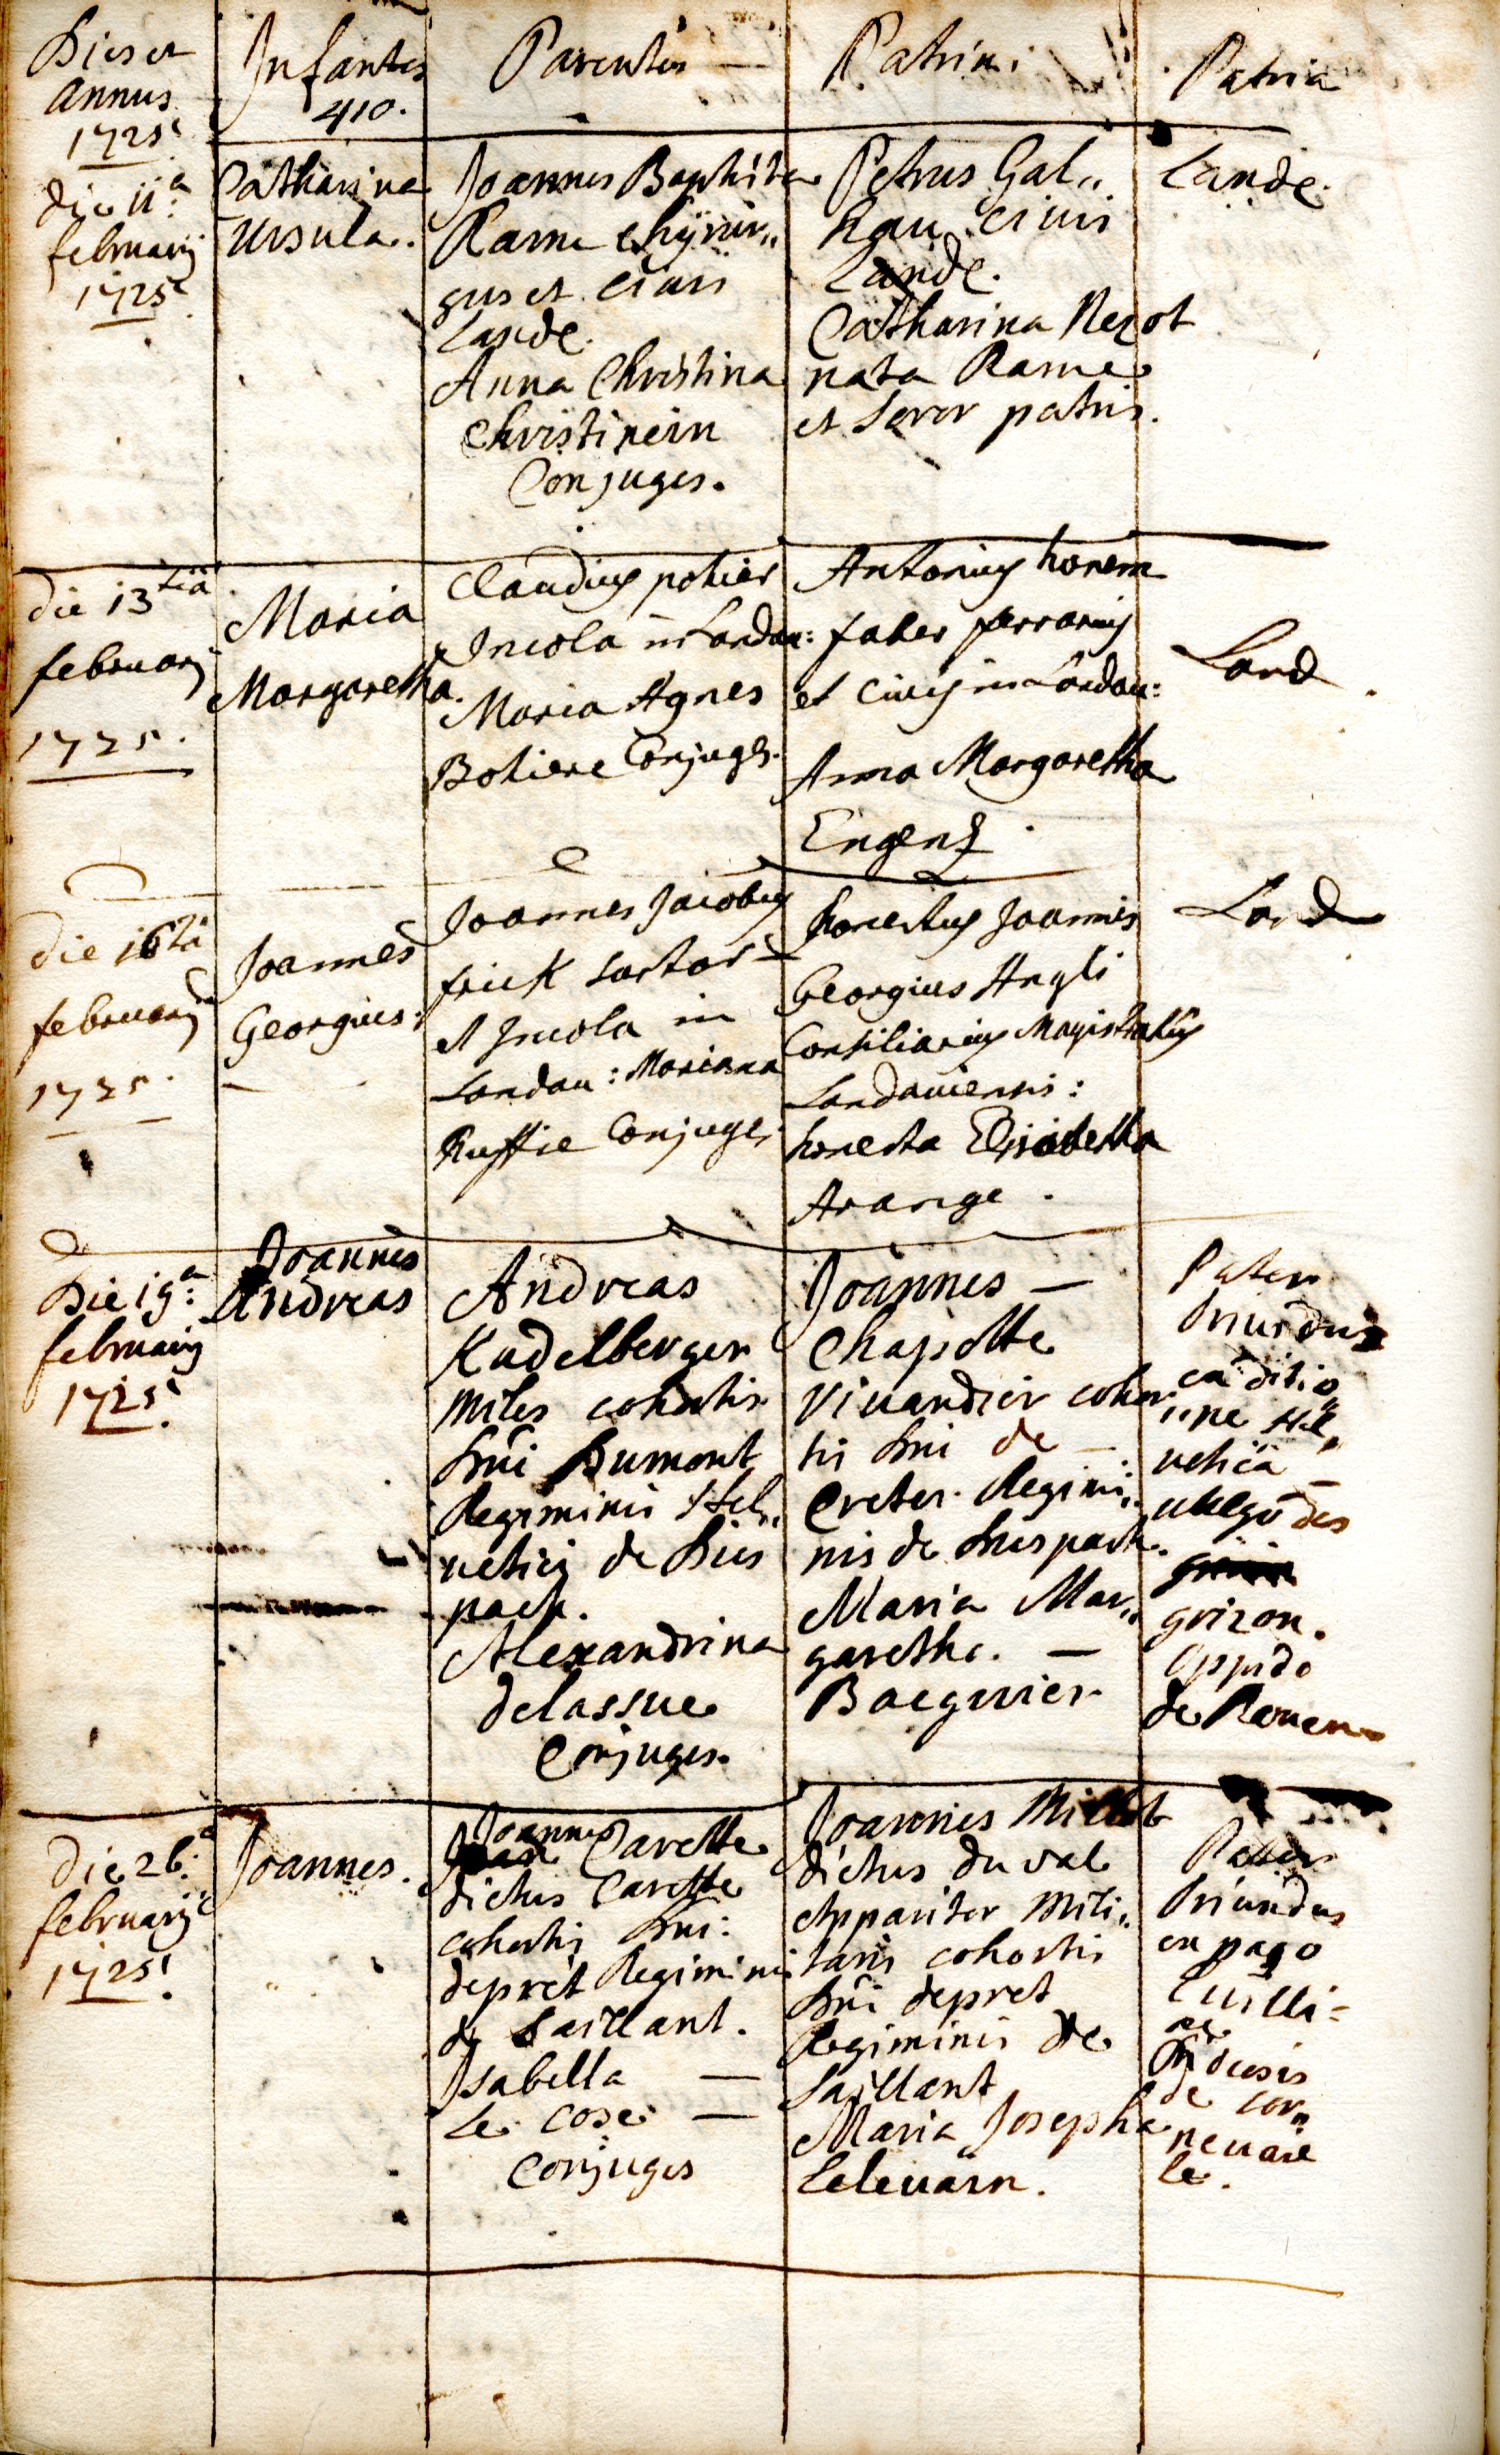 Dies et
annus
1725
Infantes
410.
Parentes
Patrini
Patria
die 11.a
februarij
1725
Catharina
Ursula.
Joannes Baptista
Rame chÿrur„
gus et civis
Landę.
Anna Christina
Christinein
Conjuges.
Petrus Gal„
hau civis
Landę.
Catharina Rezot
nata Rame
et soror patris.
Landę.
die 13tia
februarij
1725.
Maria
Margaretha.
Claudius potier
Incola in Landau:
Maria Agnes
Botiere Conjuges.
Antonius honem
faber ferrarius
et civis in Landau:
Anna Margaretha
Land.
die 16ta
februarij
1725.
Joannes
Georgius:
Joannes Jacobus
frick sartor
et Incola in
Landau: Mariana
Ruffie Conjuges
honestus Joannes
Georgius Angli
Consiliarius Magistratus
Landauiensis:
honesta Elisabetha
Arange.
Land
Die 19.a
februarij
1725.
Joannes
Andreas
Andreas
Kudelberger
miles cohortis
Dni Dumont
Regiminis Hel„
uetici de Dies
pach.
Alexandrina
delassue
Conjuges.
Joannes —
Chapotte
Vivandier cohor
tis Dni de —
Creter Regimi„
nis de Diespach.
Maria Mar„
garetha. —
Baeguier
Pater
Oriundus
ex ditio
„ne Hel„
uetia —
grizon.
Oppido
de Rouen
die 26.a
februarij
1725.
Joannes.
Joannes Carette
dictus Carette
cohortis Dni:
depret Regiminis
de Saillant.
Isabella —
Le Cose —
Conjuges
Joannes Millot
dictus du val
Appariter mili„
taris cohortis
Dni depret
Regiminis de
Saillant
Maria Josepha
Leleuarn.
Pater
Oriundus
ex pago
de cor„
neuaie
le.